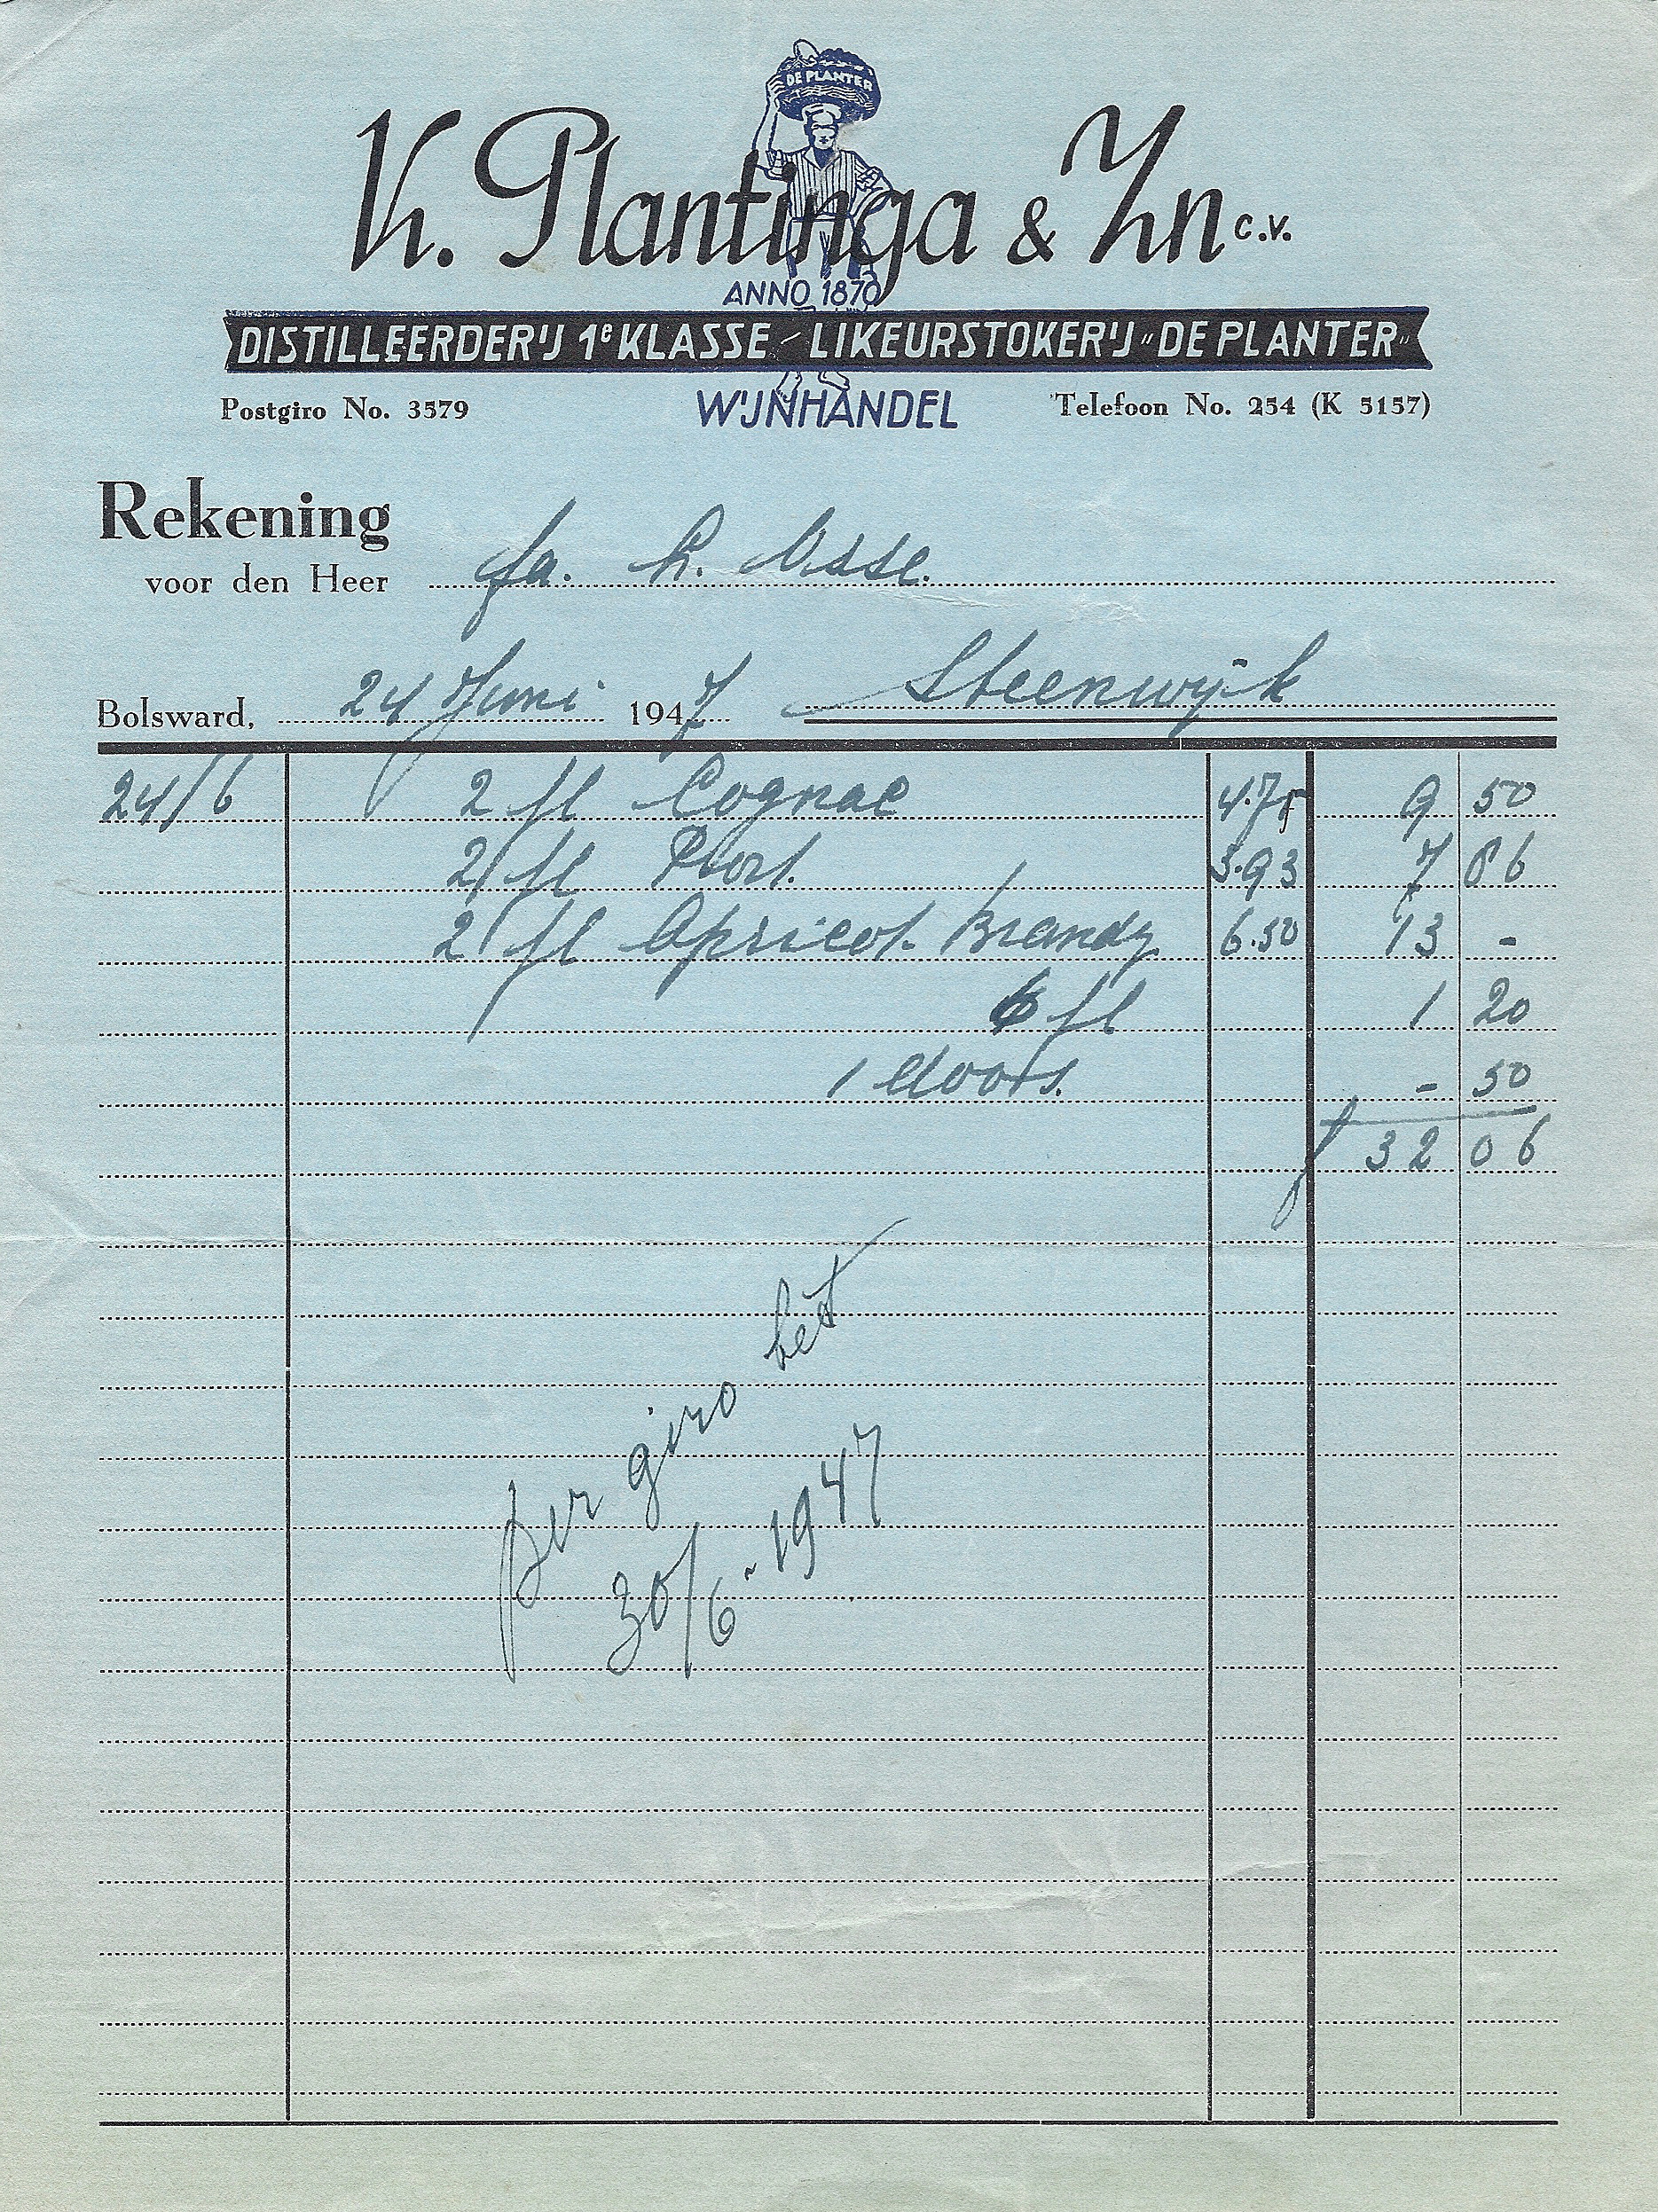 DE PLANTER
K. Plantinga & Zn c.v.
ANNO 1870
DISTILLEERDERIJ 1e KLASSE - LIKEURSTOKERIJ "DE PLANTER"
Postgiro No. 3579 WIJNHANDEL Telefoon No. 254 (K 5157)
Rekening
voor den Heer fa. h. Asse.
Bolsward, 24 Juni 1947 Steenwijk
24/6 2 fl Cognac 4.75 9 50
2 fl Port. 3.93 7 86
2 fl Apricot Brandy 6.50 13 -
6 fl 1 20
1 doos. - 50
f 32 06
per giro bet
30/6 - 1947